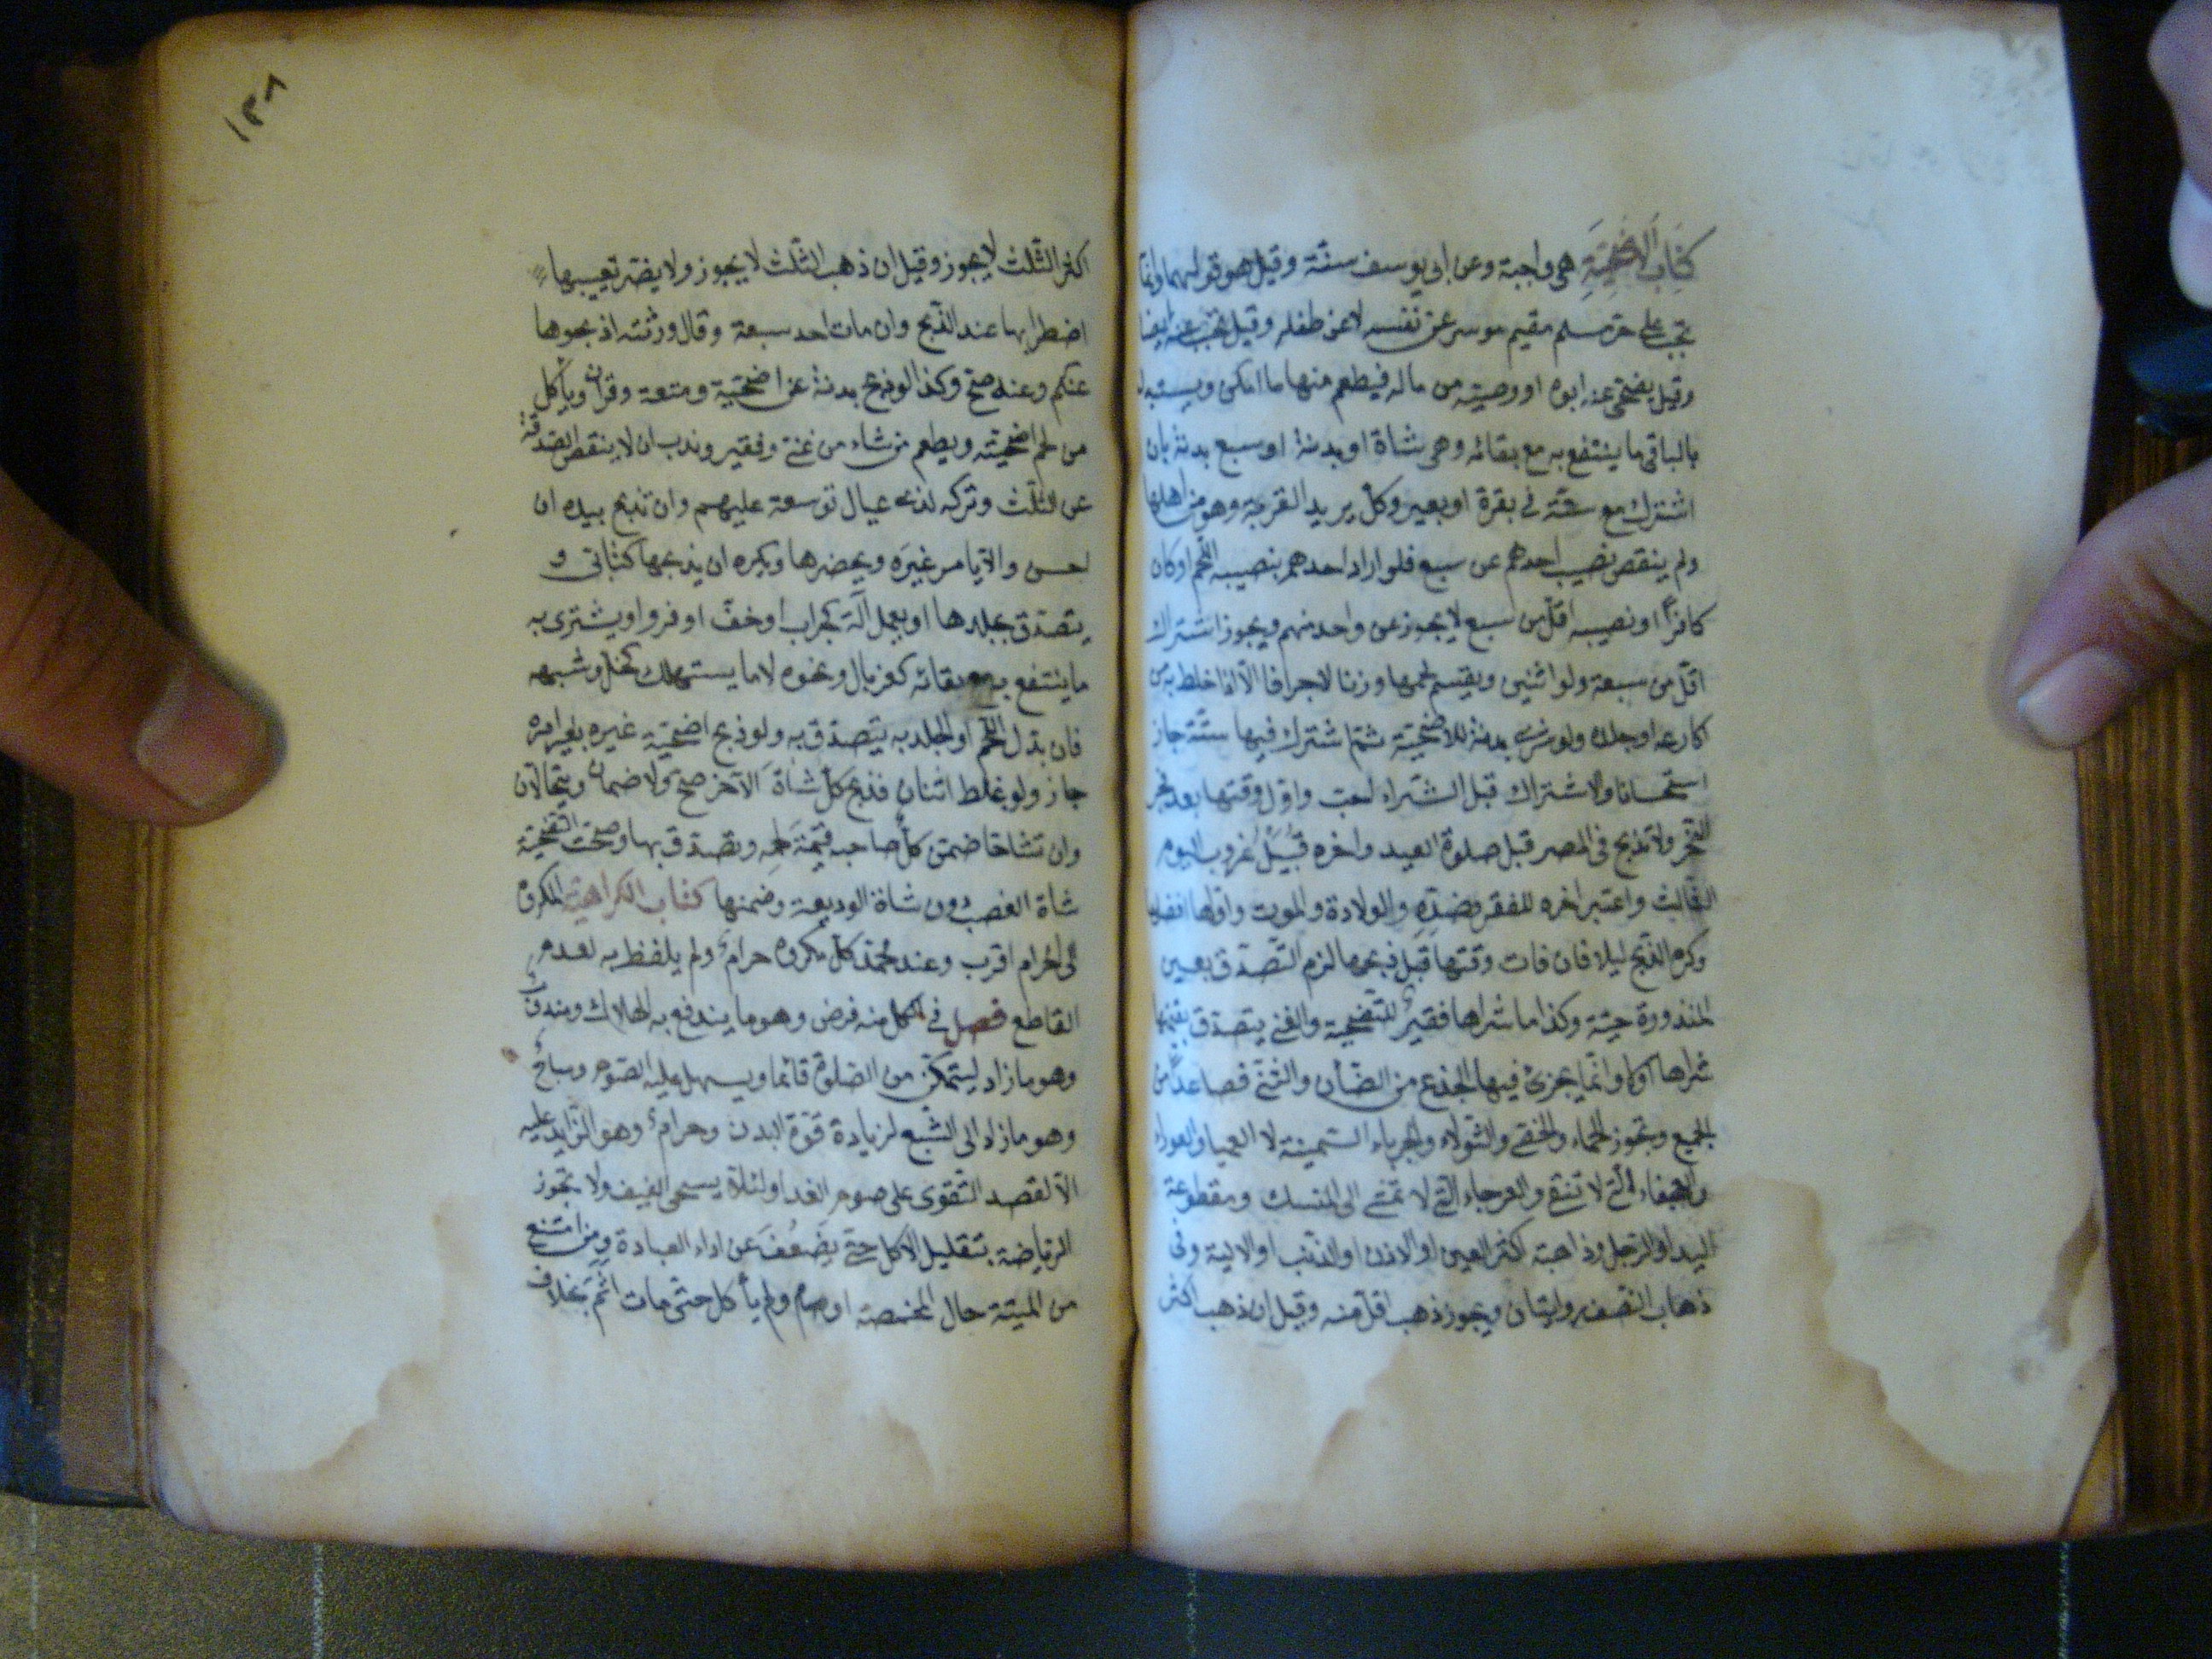 كتاب الاضحية هى واجبة وعن ابى يوسف سنة وقيل هو قولهما وانما
تجب على حر مسلم مقيم موسر عن نفسه لا عن طفله وقيل تجب عنه ايضا
وقيل يضحى عنه ابوه او وصيته من ماله فيطعم منها ما امكن ويستبدل
بالباقى ما ينتفع به مع بقائه وهى شاة او بدنة او سبع بدنة بان
اشترك مع ستة فى بقرة او بعير وكل يريد القربة وهو من اهلها
ولم ينقص نصيب احدهم عن سبع فلو اراد احدهم بنصيبه اللحم او كان
كافرا او نصيبه اقل من سبع لا يجوز عن واحد منهم ويجوز اشتراك
اقل من سبعة ولو اثنين ويقسم لحمها وزنا لا جزافا الا اذا خلط به من
اكارعه او جلده ولو شرى بدنة للاضحية ثم اشترك فيها ستة جاز
استحسانا والاشتراك قبل الشراء احب واول وقتها بعد فجر
النحر ولا تذبح فى المصر قبل صلوة العيد واخره قبيل غروب اليوم
الثالث واعتبر اخره للفقر وضده والولادة والموت واولها افضلها
وكره الذبح ليلا فان فات وقتها قبل ذبحها لزم التصدق بعين
المنذورة حية وكذا ما شراها فقير للتضحية والغنى يتصدق بقيمتها
شراها اولا وانما يجزئ فيها الجذع من الضأن والثنى فصاعدا من
الجميع وتجوز الجماء والخصى والثولاء والجرباء السمينة لا العمياء والعوراء
والعجفاء التى لا تنقى والعرجاء التى لا تمشى الى المنسك ومقطوعة
اليد او الرجل وذاهبة اكثر العين او الاذن او الذنب او الالية وفى
ذهاب النصف روايتان ويجوز ذهب اقل منه وقيل ان ذهب اكثر
١٣٨
اكثر الثلث لا يجوز وقيل ان ذهب الثلث لا يجوز ولا يضر تعييبها
اضطرابها عند الذبح وان مات احد سبعة وقال ورثته اذبحوها
عنكم وعنه صح وكذا لو ذبح بدنة عن اضحية ومتعة وقران ويأكل
من لحم اضحيته ويطعم من شاء من غنى وفقير وندب ان لا ينقص الصدقة
عن الثلث وتركه لذى عيال توسعة عليهم وان تذبح بيده ان
احسن والا يامر غيره ويحضرها ويكره ان يذبحها كتابى و
يتصدق بجلدها او يعمل آلة كجراب او خف او فرو او يشترى به
ما ينتفع به مع بقائه كغربال ونحوه لا ما يستهلك كخل وشبهه
فان بدل اللحم او الجلد به يتصدق به ولو ذبح اضحية غيره بغير امره
جاز ولو غلط اثنان فذبح كل شاة الآخر صح ولا ضمان ويتحالان
وان تشاحا ضمن كل صاحبه قيمة لحمه وتصدق بها وصحت التضحية
شاة الغصب دون شاة الوديعة وضمنها كتاب الكراهية المكروه
الى الحرام اقرب وعند محمد كل مكروه حرام ولم يلفظ به لعدم
القاطع فصل فى الاكل منه فرض وهو ما يندفع به الهلاك ومندوب
وهو ما زاد ليتمكن من الصلوة قائما ويسهل عليه الصوم ومباح
وهو ما زاد الى الشبع لزيادة قوة البدن وحرام وهو الزايد عليه
الا لقصد التقوى على صوم الغد او لئلا يستحى الضيف ولا تجوز
الرياضة بتقليل الاكل حتى يضعف عن اداء العبادة ومن امتنع
من الميتة حال المخمصة او صام ولم يأكل حتى مات اثم بخلاف